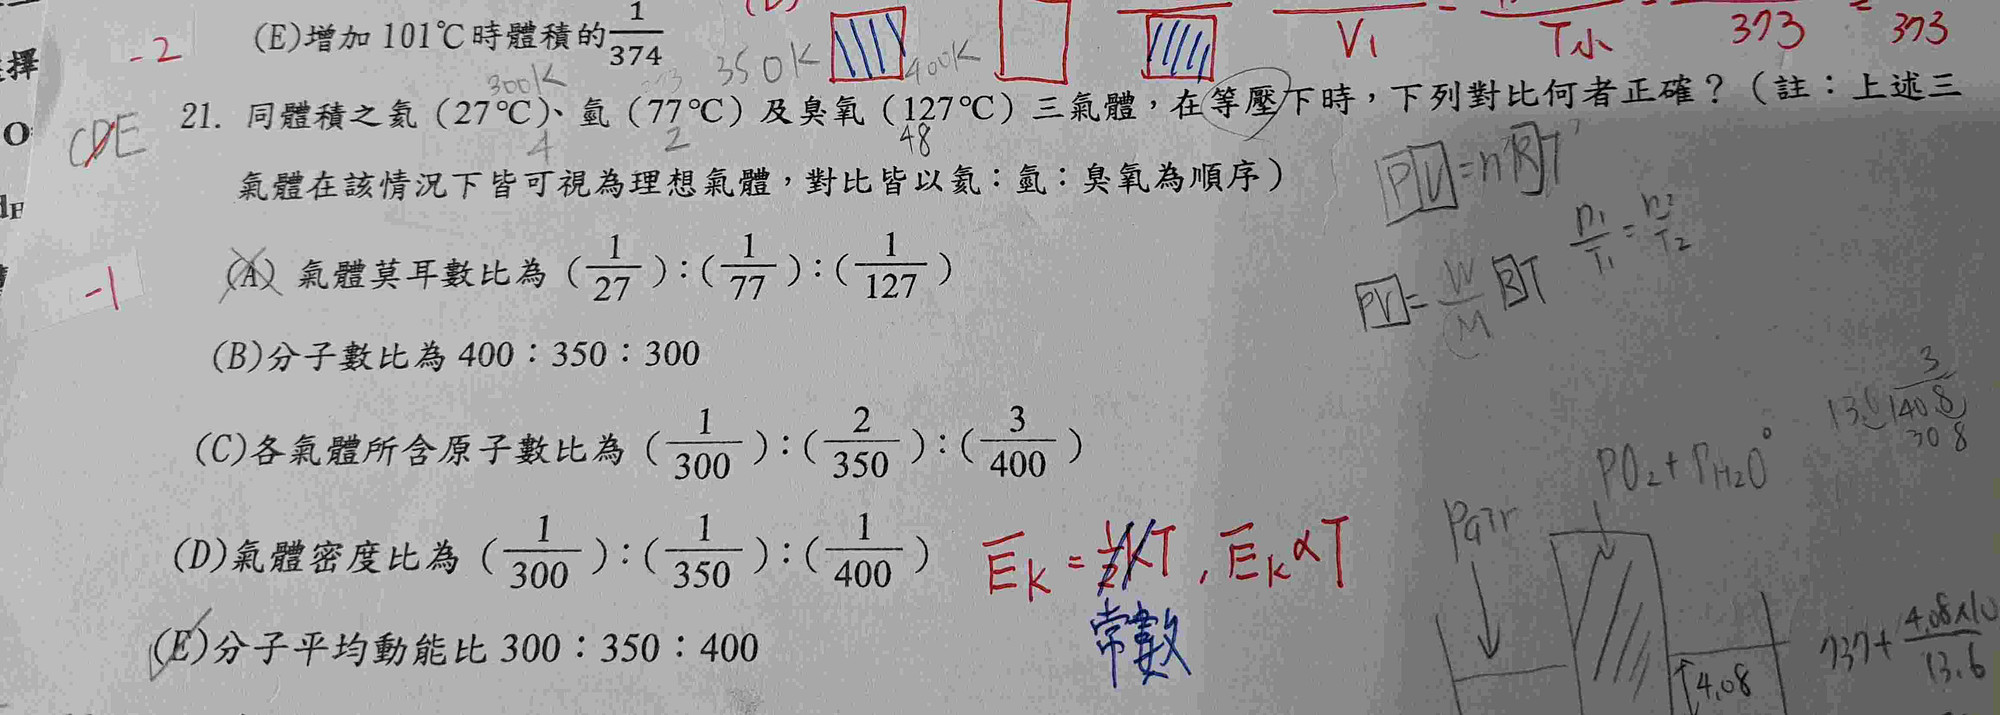 (E)增加 101℃時體積的 1/374
-2
擇
V₁
T小
373
373
300K
350K
400K
21. 同體積之氦（27℃）、氫（77℃）及臭氧（127℃）三氣體，在等壓下時，下列對比何者正確？（註：上述三
CDE
4 2 48
氣體在該情況下皆可視為理想氣體，對比皆以氦：氫：臭氧為順序）
PV=nRT
n₁/T₁=n₂/T₂
(A) 氣體莫耳數比為（1/27）：（1/77）：（1/127）
-1
PV=W/M RT
(B)分子數比為 400：350：300
(C)各氣體所含原子數比為（1/300）：（2/350）：（3/400）
3
13.6 140.8
308
PO₂+PH₂O°
Pair
(D)氣體密度比為（1/300）：（1/350）：（1/400）
E̅K = ½KT , E̅K∝T
常數
(E)分子平均動能比 300：350：400
4.08
737+ 4.08×10/13.6